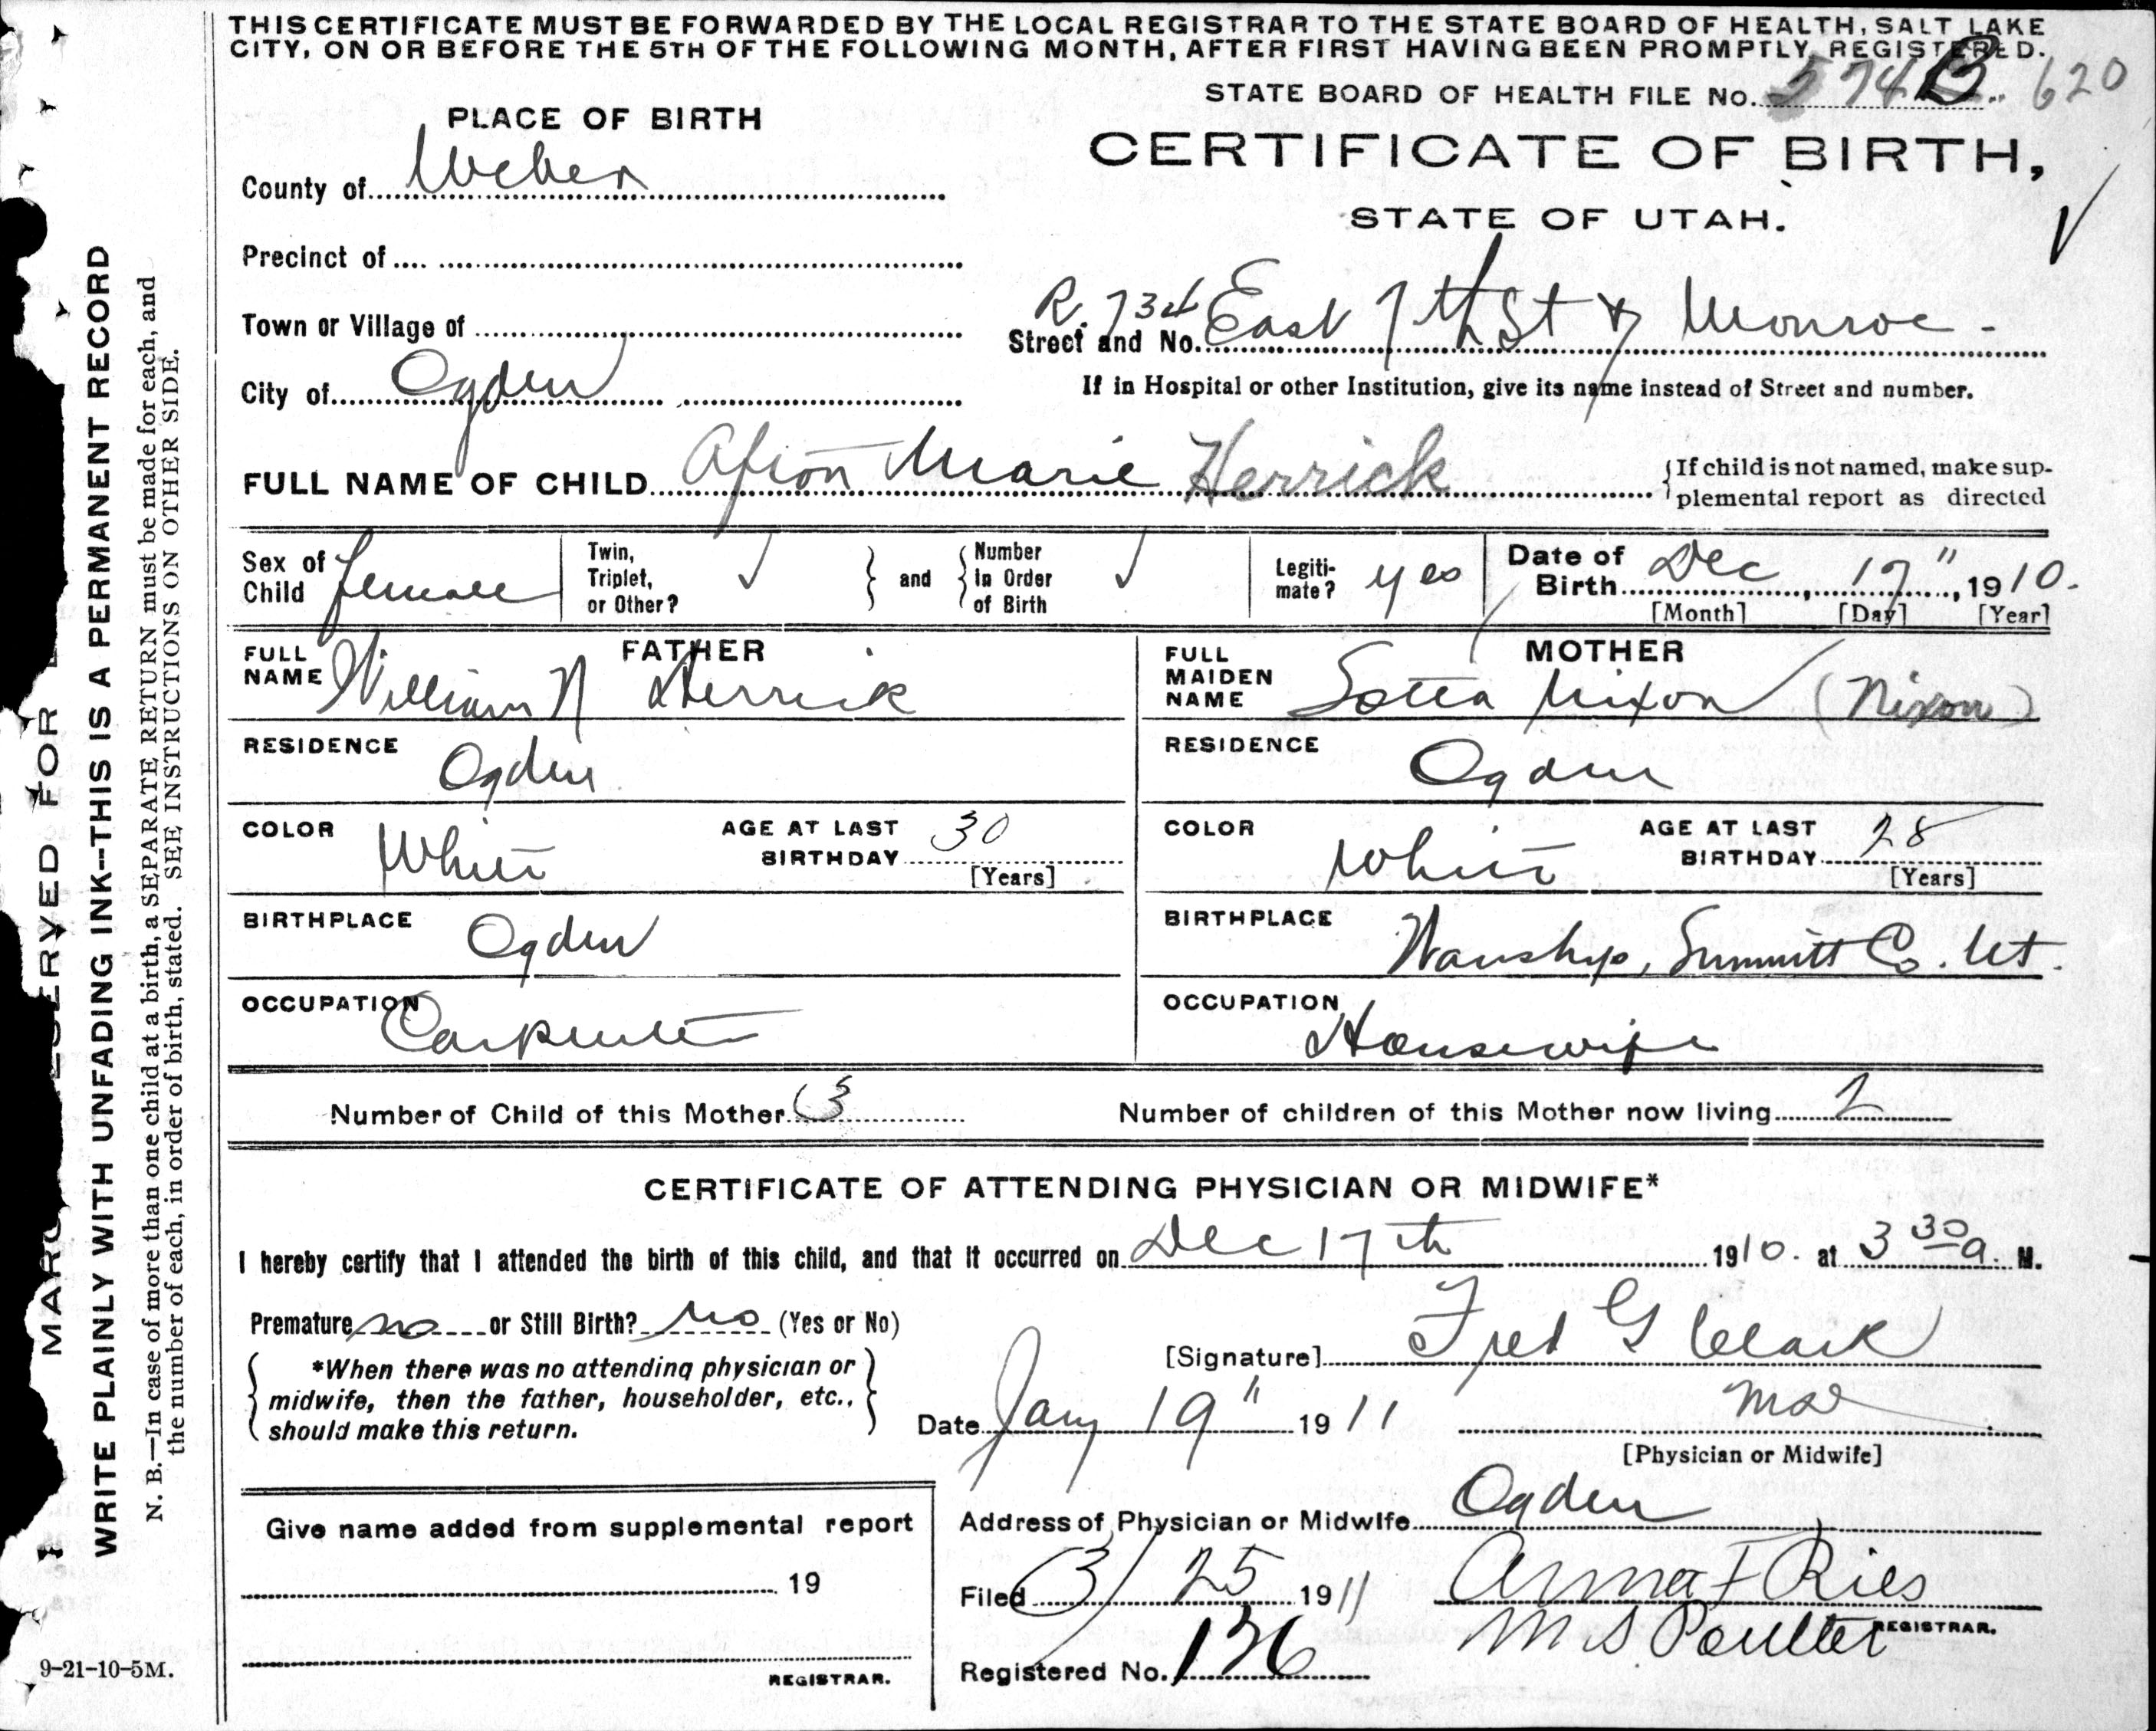 THIS CERTIFICATE MUST BE FORWARDED BY THE LOCAL REGISTRAR TO THE STATE BOARD OF HEALTH, SALT LAKE
CITY, ON OR BEFORE THE 5TH OF THE FOLLOWING MONTH, AFTER FIRST HAVING BEEN PROMPTLY REGISTERED.
STATE BOARD OF HEALTH FILE No. 574 B. 620
PLACE OF BIRTH
CERTIFICATE OF BIRTH,
County of Weber
STATE OF UTAH.
Precinct of
Town or Village of
R. 734
Street and No. East 7th St & Monroe -
City of Ogden
If in Hospital or other Institution, give its name instead of Street and number.
FULL NAME OF CHILD Afton Marie Herrick
{If child is not named, make sup-
plemental report as directed
Sex of Child female
Twin, Triplet, or Other? ✓
} and {
Number in Order of Birth ✓
Legiti-mate? yes
Date of Birth Dec, 17", 1910.
[Month] [Day] [Year]
FATHER
FULL NAME William N Herrick
MOTHER
FULL MAIDEN NAME Lotta Nixon (Nixon)
RESIDENCE Ogden
RESIDENCE Ogden
COLOR White
AGE AT LAST BIRTHDAY 30
[Years]
COLOR White
AGE AT LAST BIRTHDAY 28
[Years]
BIRTHPLACE Ogden
BIRTHPLACE Wanship, Summitt Co. Ut.
OCCUPATION Carpenter
OCCUPATION Housewife
Number of Child of this Mother 3
Number of children of this Mother now living 2
CERTIFICATE OF ATTENDING PHYSICIAN OR MIDWIFE*
I hereby certify that I attended the birth of this child, and that it occurred on Dec 17th 1910. at 3 30 a. M.
Premature no or Still Birth? no (Yes or No)
*When there was no attending physician or
midwife, then the father, householder, etc.,
should make this return.
[Signature] Fred G Clark
Date Jany 19" 1911
MD
[Physician or Midwife]
Give name added from supplemental report
19
REGISTRAR.
Address of Physician or Midwife Ogden
Filed 3/25 1911
Anna F Ries
M S Poulter
REGISTRAR.
Registered No. 136
9-21-10-5M.
WRITE PLAINLY WITH UNFADING INK--THIS IS A PERMANENT RECORD
N. B.—In case of more than one child at a birth, a SEPARATE RETURN must be made for each, and
the number of each, in order of birth, stated. SEE INSTRUCTIONS ON OTHER SIDE.